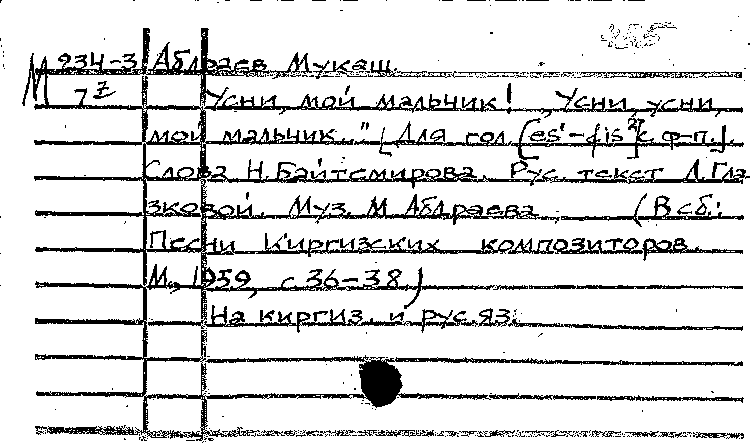 М 934-3 Абдраев Мукаш.
7 Усни, мой мальчик! „Усни, усни,
мой мальчик.." [Для гол. [es'-fis²] с ф-п.].
Слова Н. Байтемирова. Рус. текст Л. Гла
зковой. Муз. М Абдраева. (В сб.:
Песни Киргизских композиторов.
М., 1959, с. 36-38)
На киргиз. и рус. яз.